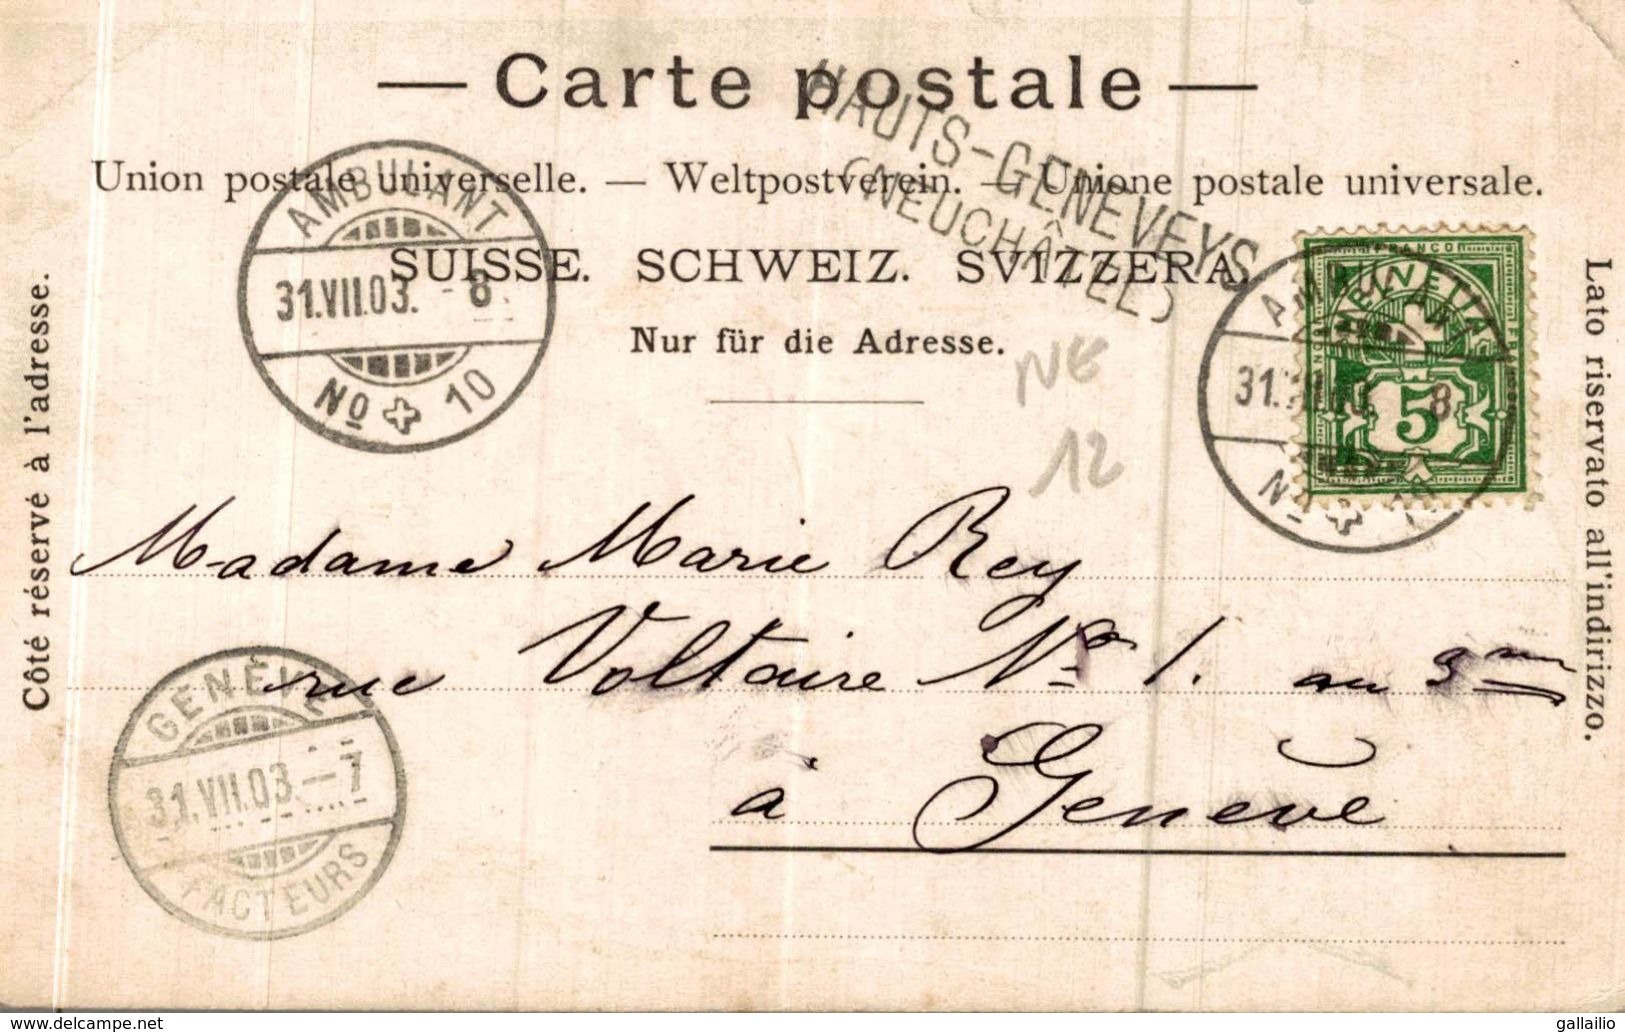 — Carte postale —
HAUTS-GENEVEYS
(NEUCHÂTEL)
Union postale universelle. — Weltpostverein. — Unione postale universale.
SUISSE. SCHWEIZ. SVIZZERA.
Nur für die Adresse.
AMBULANT
31.VII.03. - 8
No 10
FRANCO
HELVETIA
5
AMBULANT
31. VII. 8
No
NE
12
Côté réservé à l'adresse.
Lato riservato all'indirizzo.
Madame Marie Rey
rue Voltaire No 1. au 3me
à Genève
GENÈVE
31.VII.03 - 7
FACTEURS
www.delcampe.net
gallailio